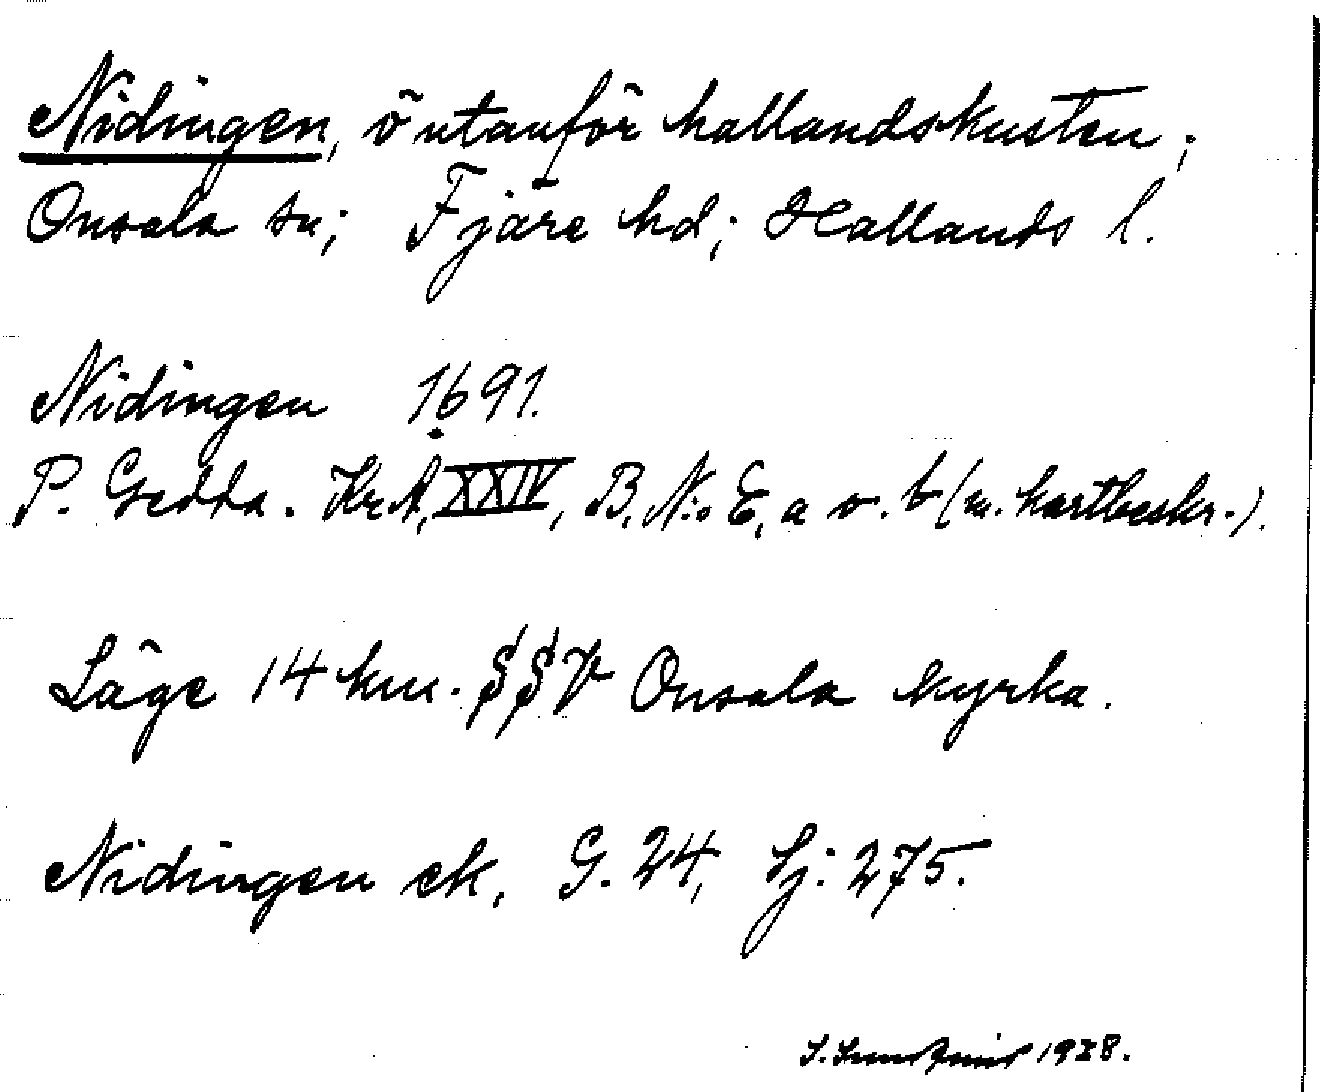 Nidingen, ö utanför hallandskusten;
Onsala sn; Fjäre hd; Hallands l.
Nidingen 1691.
P. Gedda. KrA, XXIV, B. N:o E, a o. b (m. kartbeskr.).
Läge 14 km. SSV Onsala kyrka.
Nidingen ek. G. 24, Sj: 275.
1928.